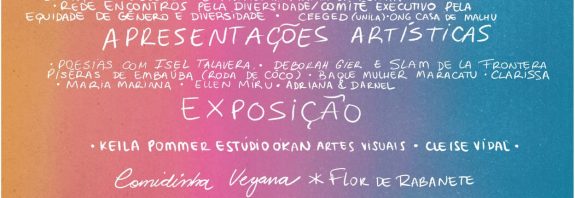 · REDE ENCONTROS PELA DIVERSIDADE/COMITÊ EXECUTIVO PELA
EQUIDADE DE GÊNERO E DIVERSIDADE · CEEGED (UNILA)· ONG CASA DE MALHU
APRESENTAÇÕES ARTÍSTICAS
· POESIAS COM ISEL TALAVERA · DEBORAH GIER E SLAM DE LA FRONTERA
PISERAS DE EMBAÚBA (RODA DE COCO) · BAQUE MULHER MARACATU · CLARISSA
· MARIA MARIANA · ELLEN MIRU · ADRIANA & DARNEL
EXPOSIÇÃO
· KEILA POMMER ESTÚDIO OKAN ARTES VISUAIS · CLEISE VIDAL ·
Comidinha Vegana * FLOR DE RABANETE